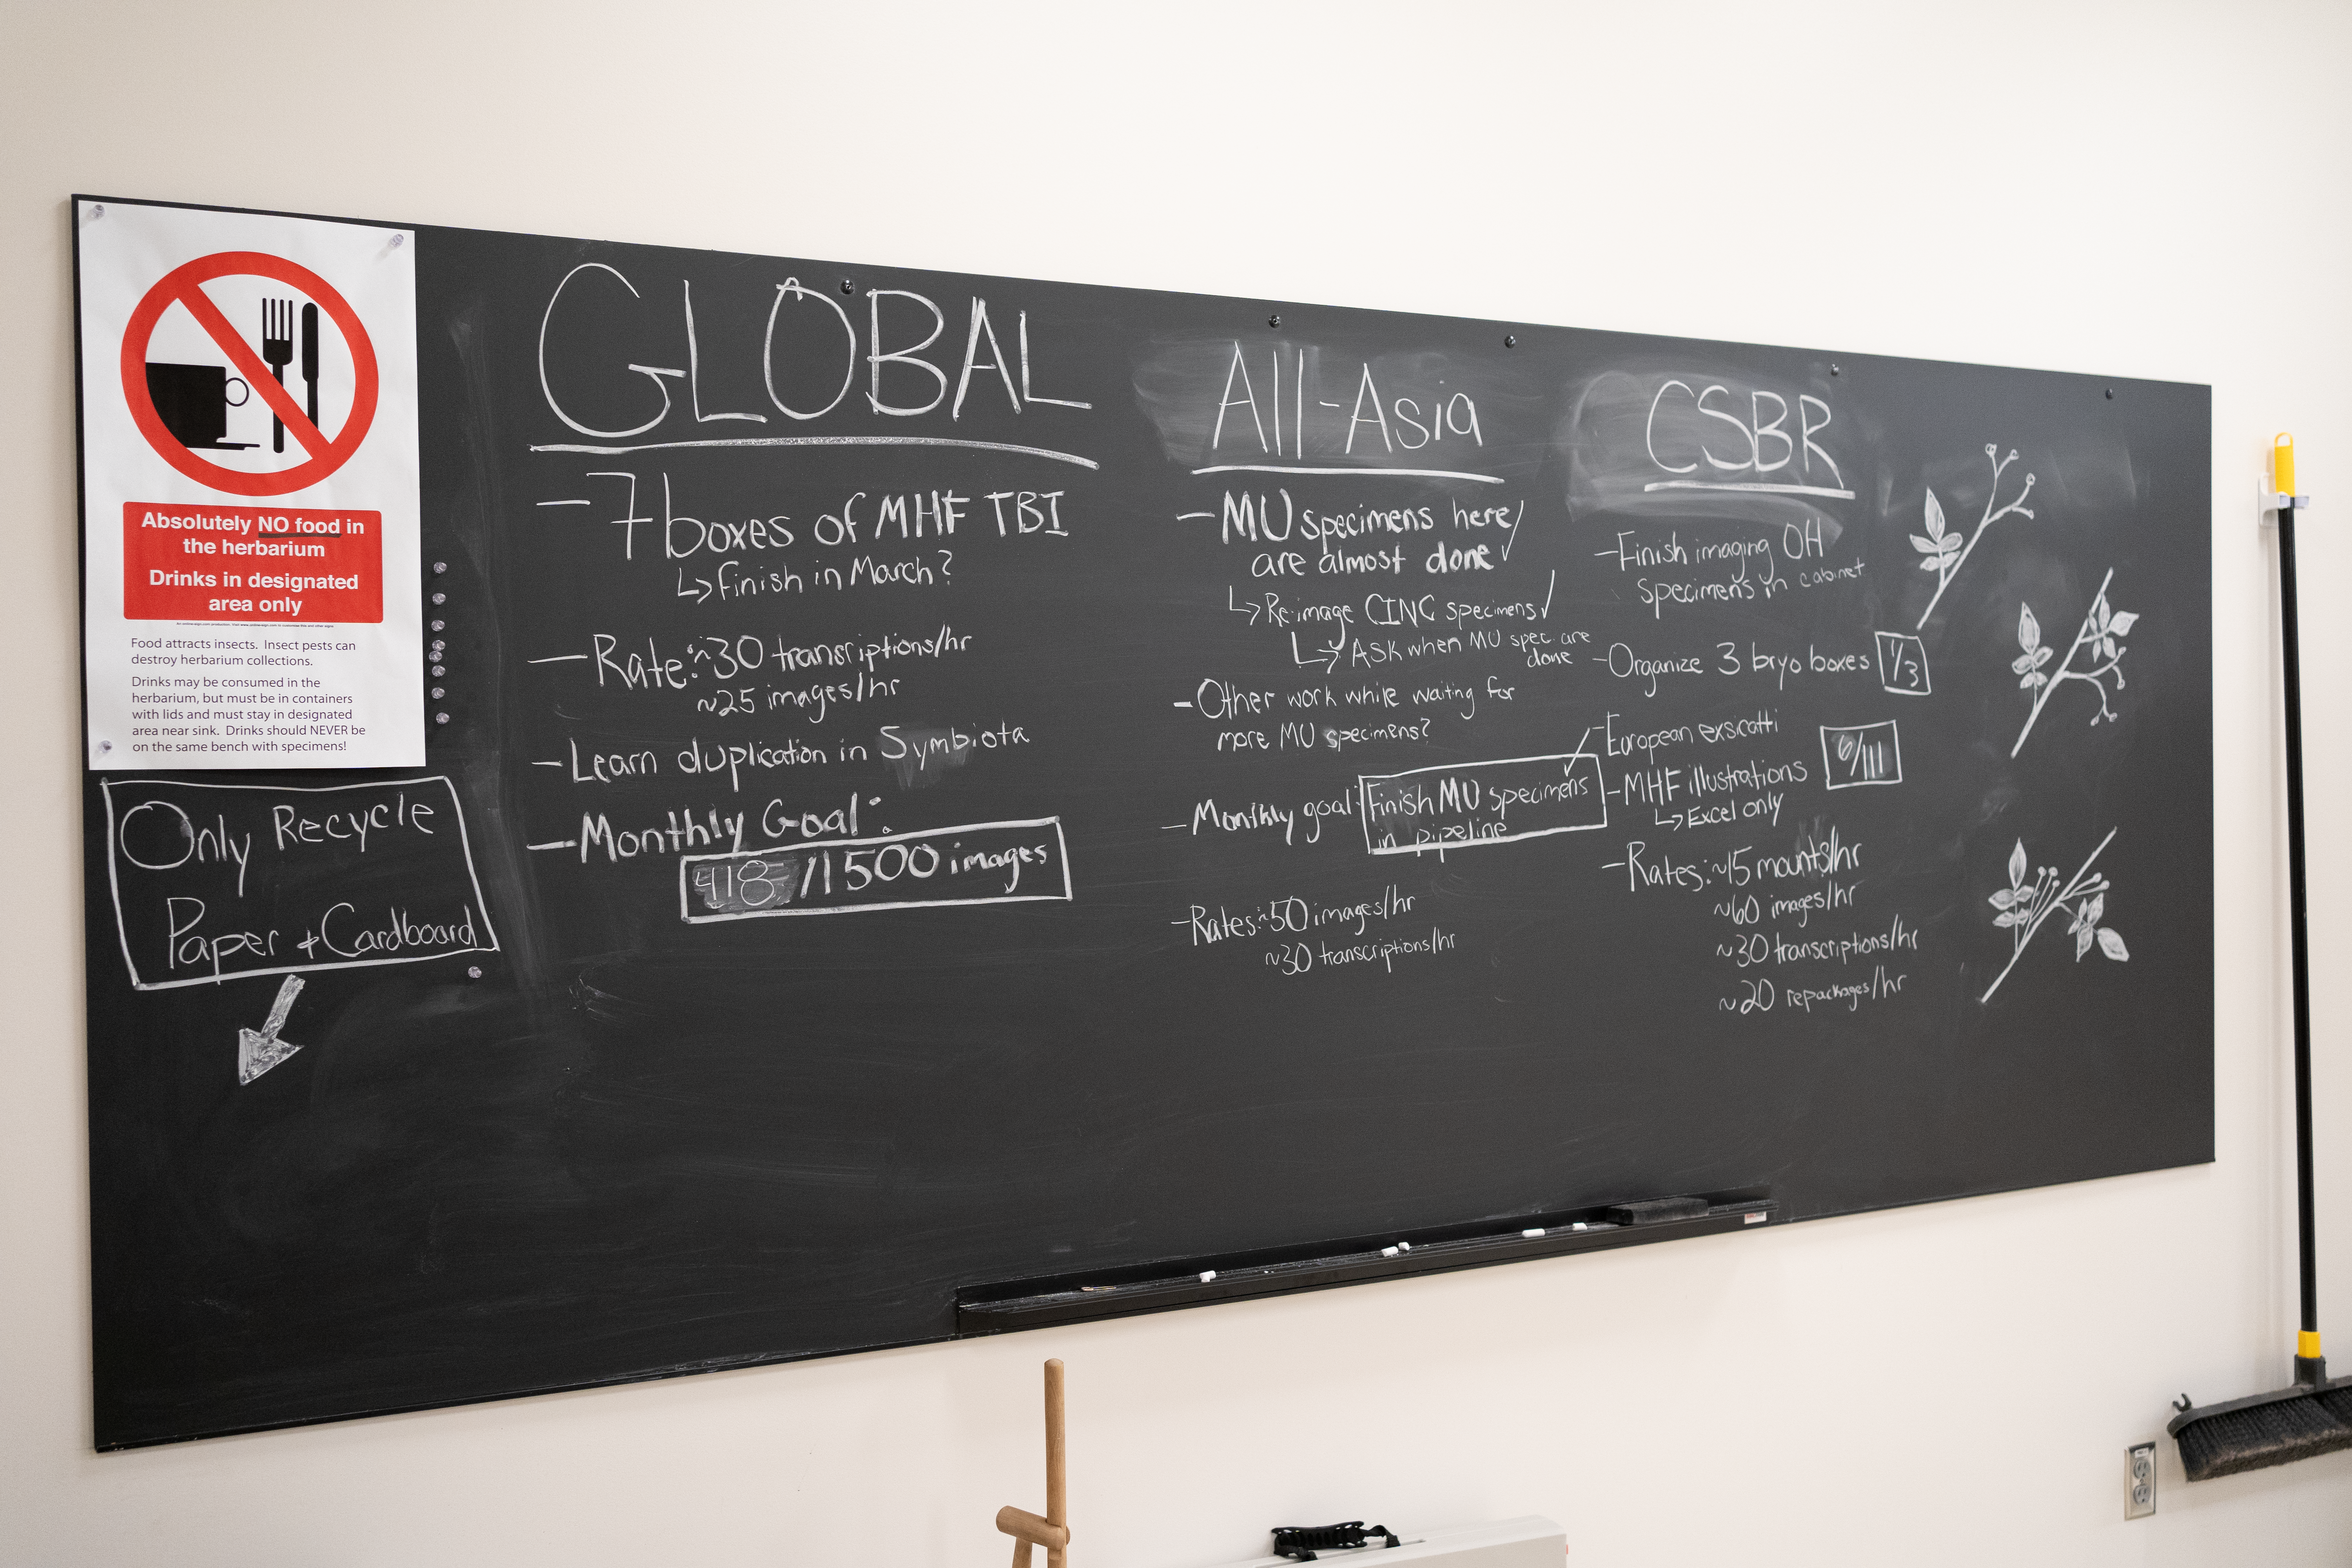 Absolutely NO food in
the herbarium
Drinks in designated
area only
Food attracts insects. Insect pests can
destroy herbarium collections.
Drinks may be consumed in the
herbarium, but must be in containers
with lids and must stay in designated
area near sink. Drinks should NEVER be
on the same bench with specimens!
Only Recycle
Paper + Cardboard
GLOBAL
- 7 boxes of MHF TBI
↳ finish in March?
- Rate: ~30 transcriptions/hr
~25 images/hr
- Learn duplication in Symbiota
- Monthly Goal:
418/1500 images
All-Asia
- MU specimens here
are almost done ✓
↳ Re-image CINC specimens ✓
↳ ASK when MU spec are
done
- Other work while waiting for
more MU specimens?
- Monthly goal: Finish MU specimens
in pipeline
- Rates: ~50 images/hr
~30 transcriptions/hr
CSBR
- Finish imaging OH
specimens in cabinet
- Organize 3 bryo boxes 1/3
- European exsicatti
- MHF illustrations 6/111
↳ Excel only
- Rates: ~15 mounts/hr
~60 images/hr
~30 transcriptions/hr
~20 repackages/hr